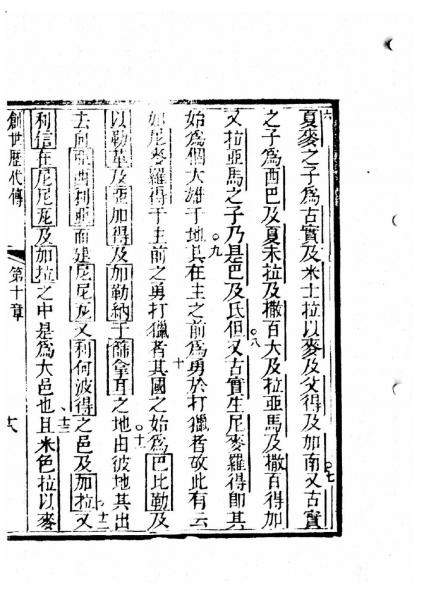 六
夏麥之子為古實及米士拉以麥及父得及加南又古實
之子為西巴及夏未拉及撒百大及拉亞馬及撒百得加
又拉亞馬之子乃是巴及氐但又古實生尼麥羅得即其
始為個大雄于地其在主之前為勇於打獵者故此有云
如尼麥羅得于主前之勇打獵者其國之始為巴比勒及
以勒革及亞加得及加勒納于篩拿耳之地由彼地其出
去向亞西利亞而建尼尼瓦又利何波得之邑及加拉又
利信在尼尼瓦及加拉之中是為大邑也且米色拉以麥
創世歷代傳 第十章 六
七
八
九
十
十一
十二
十三